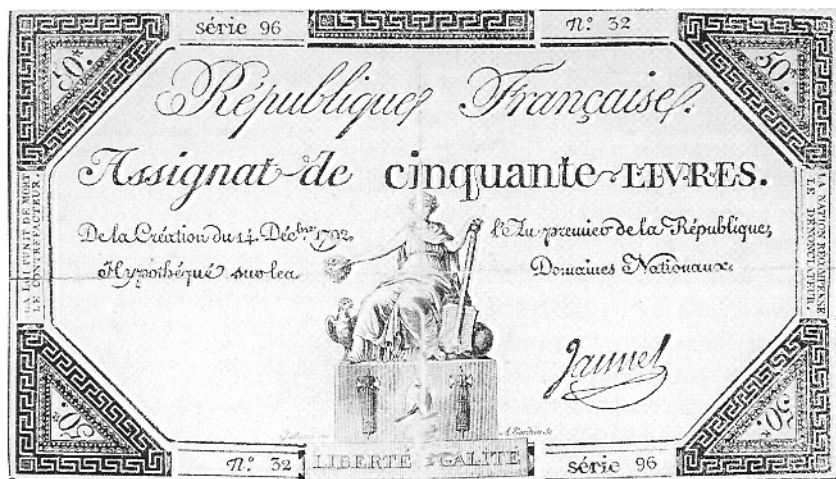 série 96
N.° 32
50.#
50.#
République Française.
Assignat de cinquante LIVRES.
De la Création du 14 Déc.bre 1792,
l'An premier de la République,
Hypothéqué sur les
Domaines Nationaux.
LA LOI PUNIT DE MORT
LE CONTREFACTEUR.
LA NATION RÉCOMPENSE
LE DÉNONCIATEUR.
Jaumel
50.#
50.#
N.° 32
LIBERTÉ EGALITÉ
série 96